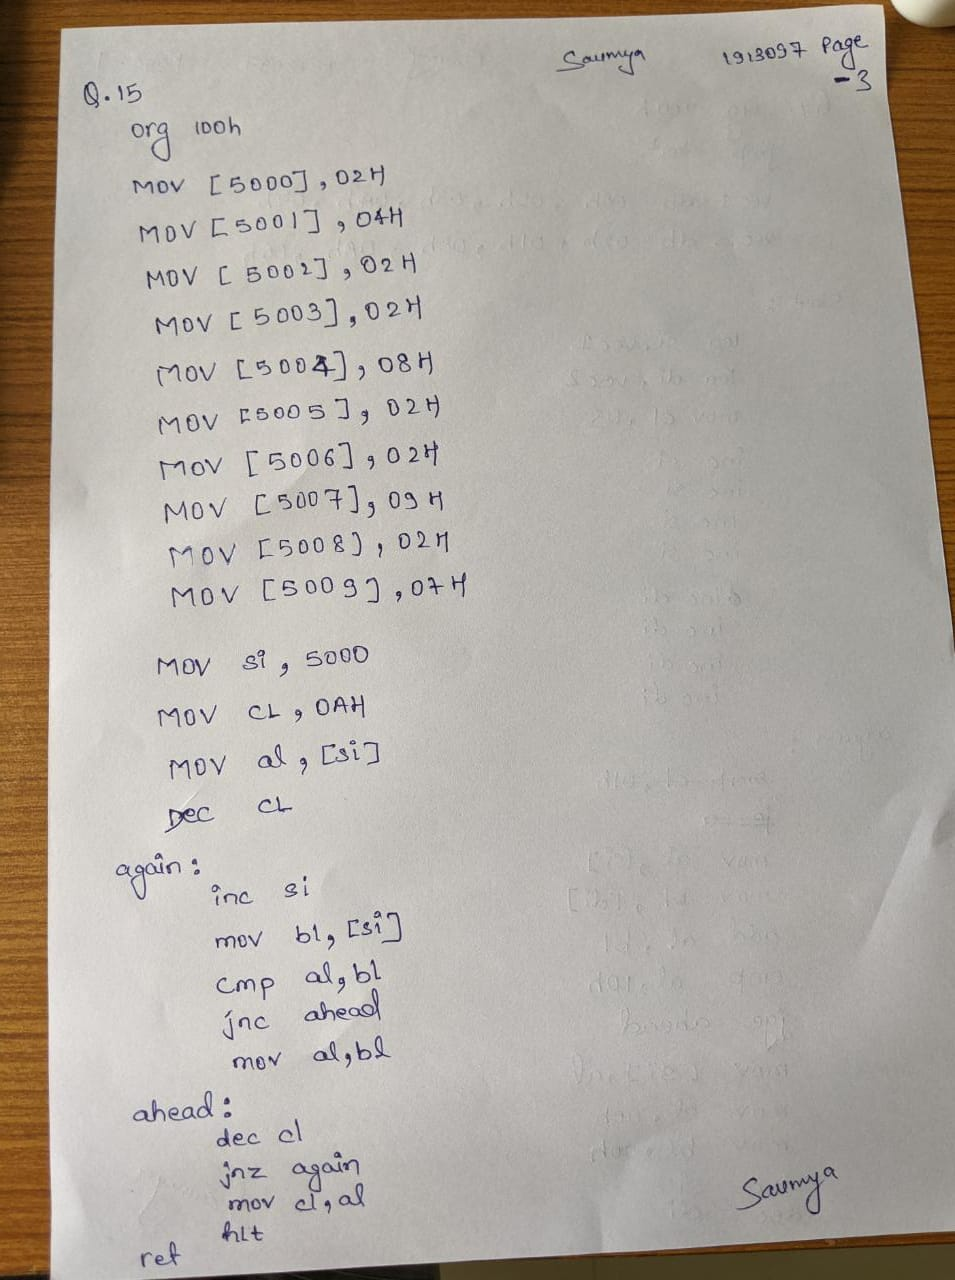 Saumya 1913097 Page
-3
Q.15
org 100h
MOV [5000], 02H
MOV [5001], 04H
MOV [5002], 02H
MOV [5003], 02H
MOV [5004], 08H
MOV [5005], 02H
MOV [5006], 02H
MOV [5007], 09H
MOV [5008], 02H
MOV [5009], 07H
MOV si, 5000
MOV CL, 0AH
MOV al, [si]
DEC CL
again:
inc si
mov bl, [si]
cmp al, bl
jnc ahead
mov al, bl
ahead:
dec cl
jnz again
mov cl, al
hlt
ret
Saumya